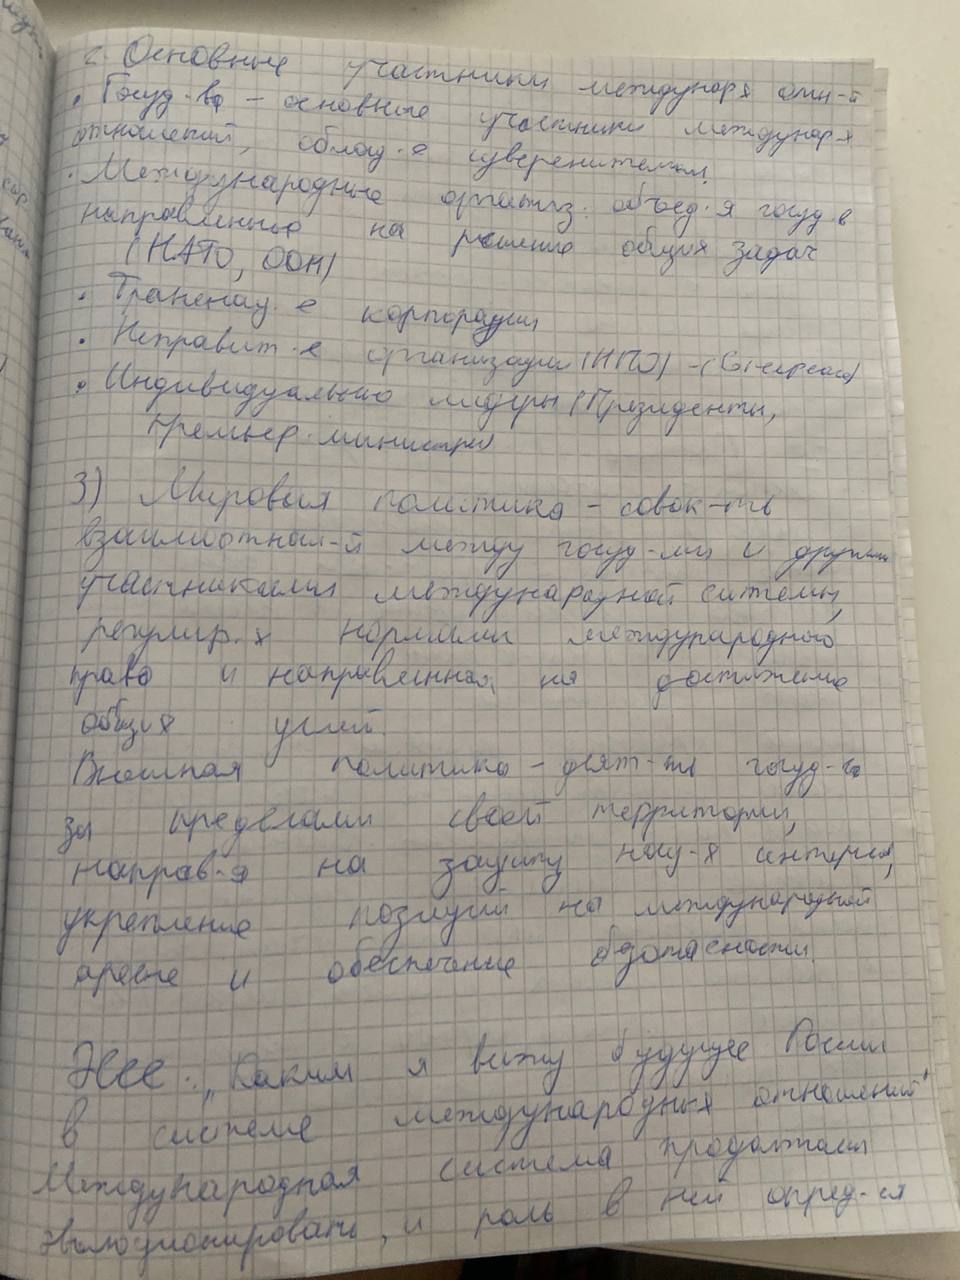 2. Основные участники междунар-х отн-й
· Госуд-ва – основные участники междунар-х
отношений, облад-е суверенитетом.
· Международные организ. объед-я госуд-в
направленные на решение общих задач
(НАТО, ООН)
· Транснац-е корпорации
· Неправит-е организации (НПО) – (Greenpeace)
· Индивидуально лидеры (Президенты,
премьер-министры)
3) Мировая политика – совок-ть
взаимоотнош-й между госуд-ми и другими
участниками международной системы,
регулир-х нормами международного
права и направленная на достижение
общих целей.
Внешняя политика – деят-ть госуд-ва
за пределами своей территории,
направ-я на защиту нац-х интересов,
укрепление позиций на международной
арене и обеспечение безопасности.
Эссе: „Каким я вижу будущее России
в системе международных отношений"
Международная система продолжает
эволюционировать, и роль в ней опред-ся